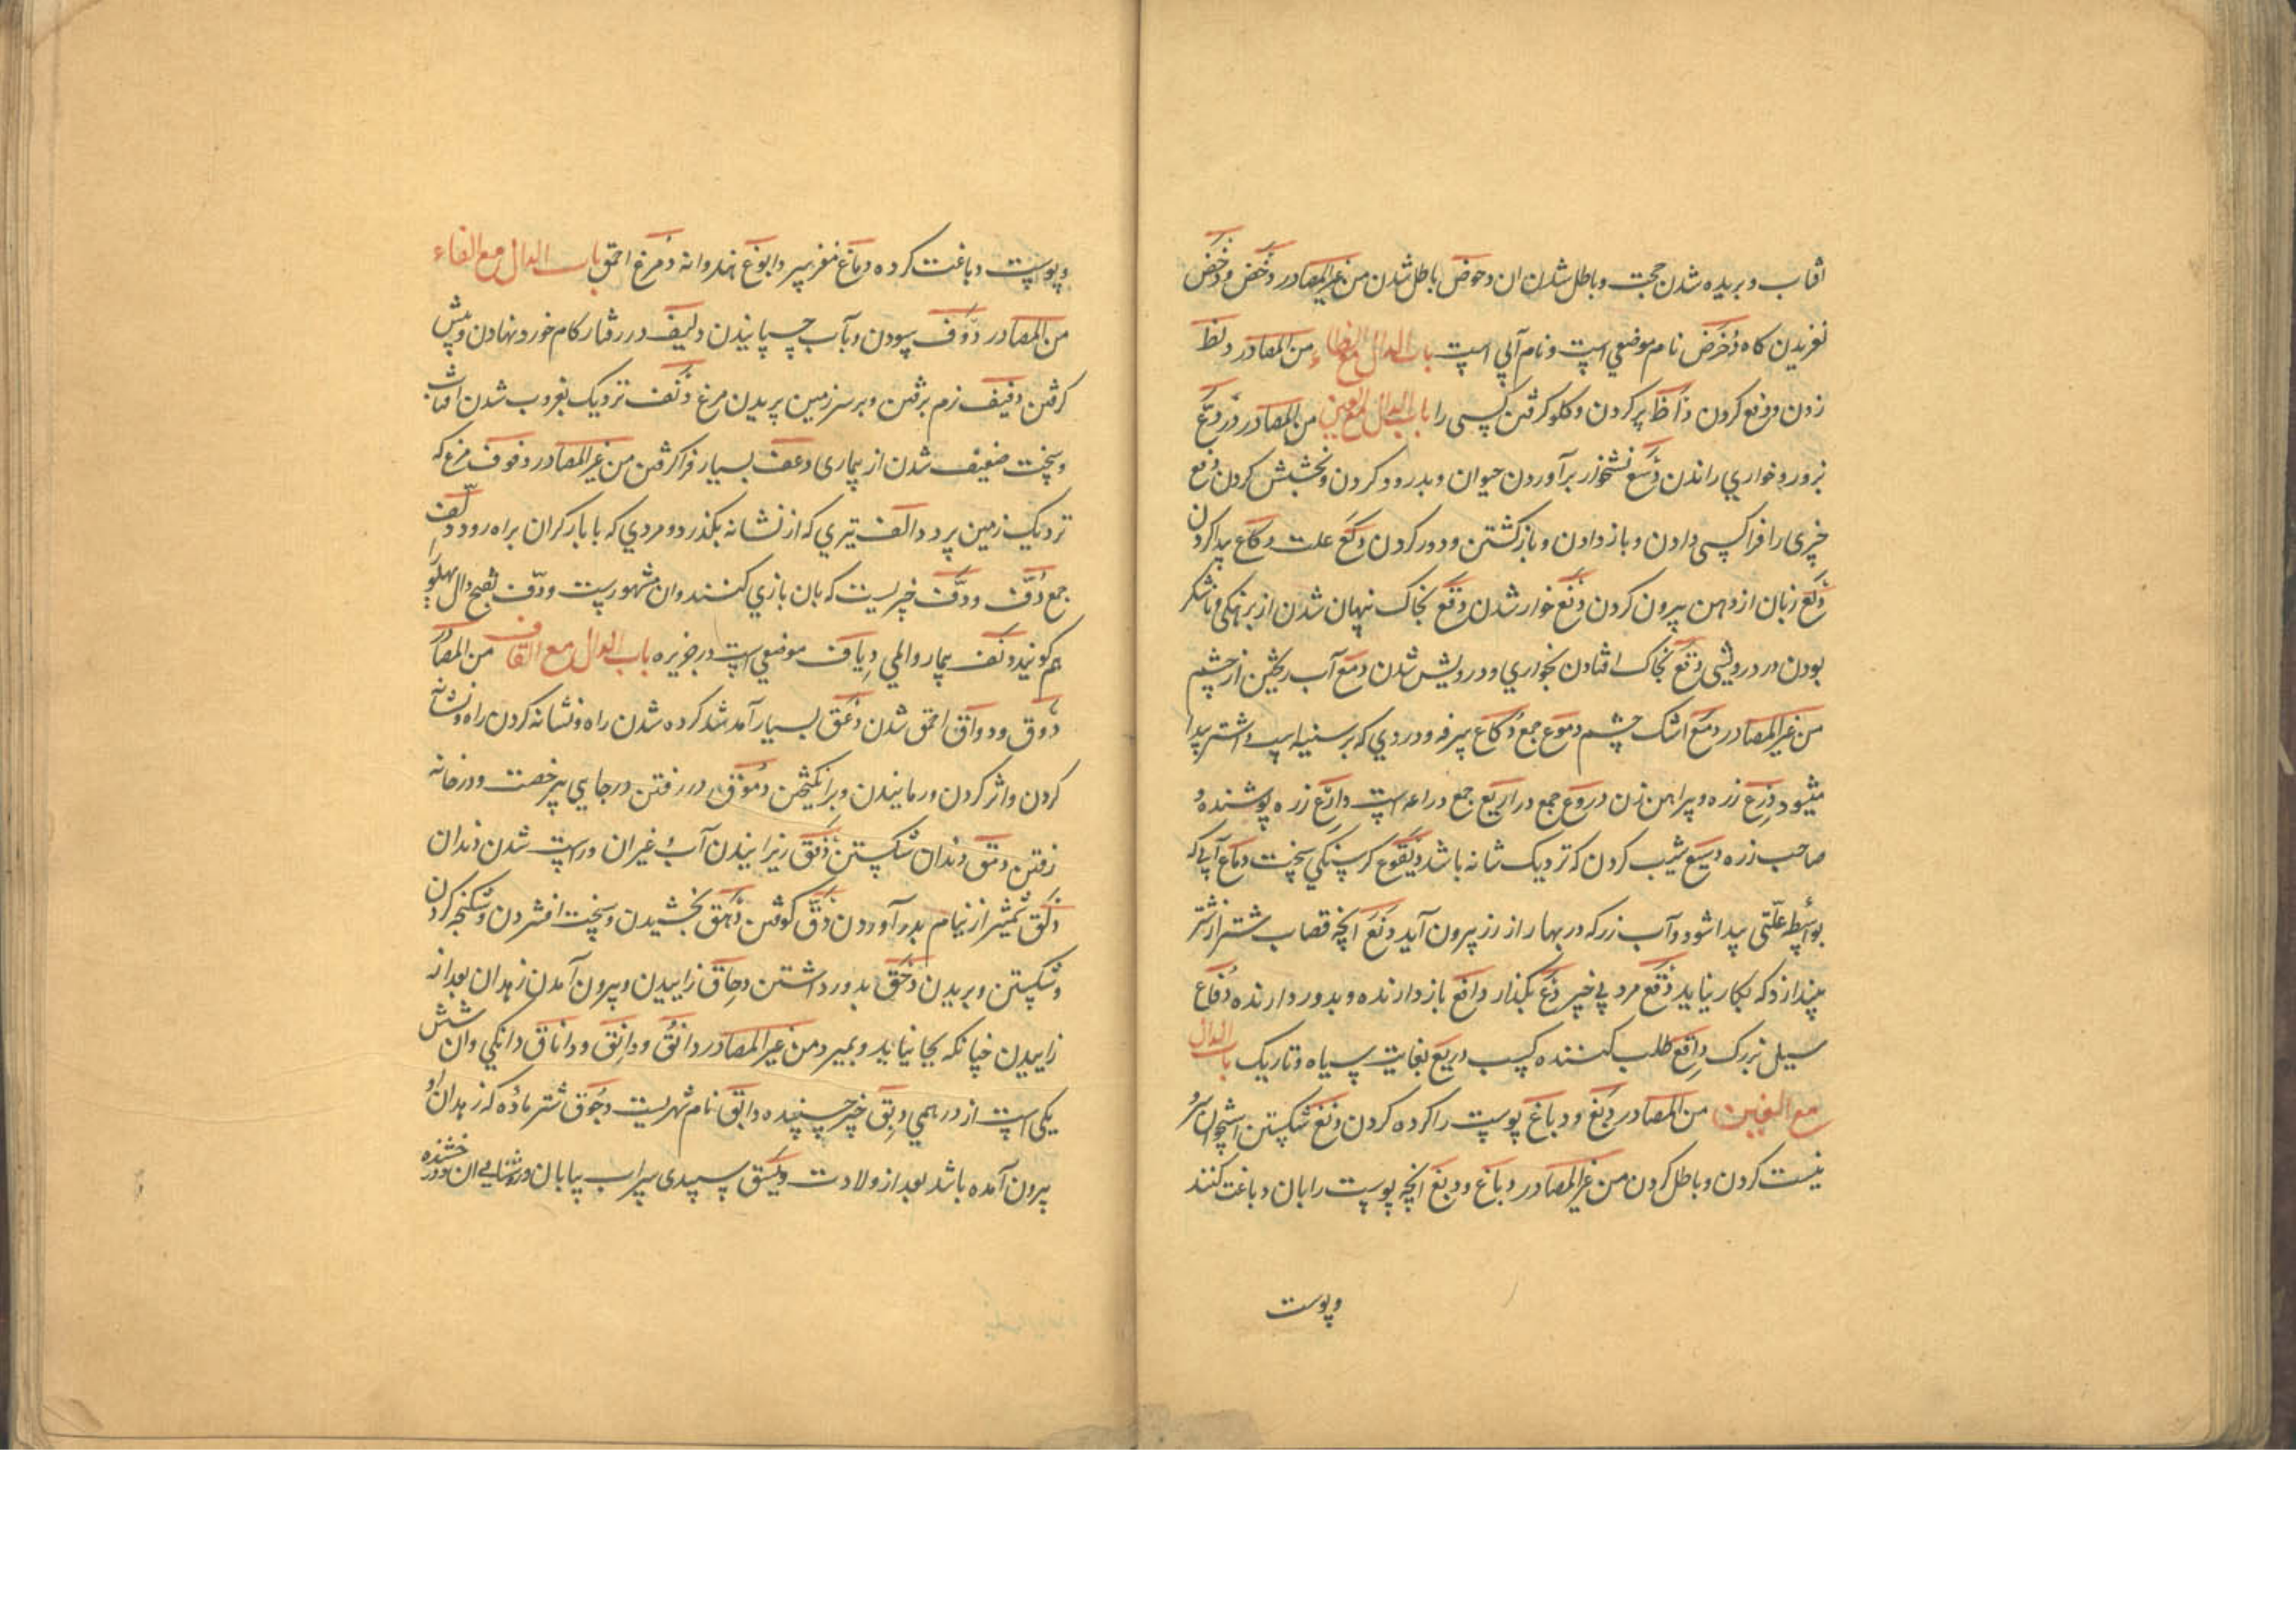 افتاب و بریده شدن حجت و باطل شدن ان دحوض باطل شدن من غیر المصادر دخض و دخض
لغزیدن کاه دخرض نام موضعی است و نام آبی است باب الدال مع الظاء من المصادر دلظ
زدن و دفع کردن داظ پر کردن و کلو کرفتن کسی را باب الدال مع العین من المصادر دع
بزور و خواری راندن دسع نشخوار برآوردن حیوان و بدر رود کردن و بخشش کردن دفع
چیزی را فراکسی دادن و باز دادن و بازکشتن و دور کردن دکع علت دکاع پیدا کردن
دلع زبان از دهن بیرون کردن دنع خوار شدن دقع بخاک پنهان شدن از برهنکی و ناشکر
بودن در درویشی دقع بخاک افتادن بخواری و درویش شدن دمع آب ریختن از چشم
من غیر المصادر دمع اشک چشم دموع جمع دکاع سرفه و دردی که بر سینه اسب و اشتر پیدا
میشود درع زره و پیراهن زن دروع جمع دراریع جمع دراعه است دارع زره پوشنده و
صاحب زره دسیع شیب کردن که نزدیک شانه باشد دیقوع کرسنکی سخت دماع آبی که
بواسطه علتی پیدا شود و آب زر که در بهار از رز بیرون آید دنع انچه قصاب شتر از شتر
بیندازد که بکار نیاید دقع مرد بی خیر دع بکذار دافع باز دارنده و بدور دارنده دفاع
سیل بزرک داقع طلب کننده کسب دریع بغایت سیاه و تاریک باب الدال
مع الغین من المصادر دبغ و دباغ پوست را کرده کردن دمغ شکستن استخوان سر و
نیست کردن و باطل کردن من غیر المصادر دباغ و دبغ انچه پوست را بان دباغت کنند
و پوست
و پوست دباغت کرده دماغ مغز سر دابوغ هندوانه دمرغ احمق باب الدال مع الفاء
من المصادر دوف سودن و بآب چسپانیدن دلیف در رفتار کام خورد نهادن و پیش
کرفتن دفیف نرم برفتن و بر سر زمین پریدن مرغ دنف نزدیک بغروب شدن افتاب
و سخت ضعیف شدن از بیماری دعف بسیار فراکرفتن من غیر المصادر دفوف مرغ که
نزدیک زمین پرد دالف تیری که از نشانه بکذرد و مردی که با بار کران براه رود دلف
جمع دف و دف چیزیست که بان بازی کنند و ان مشهورست و دف بفتح دال پهلو را
هم کویند دنف بیمار والمی دیاف موضعی است در جزیره باب الدال مع القاف من المصادر
دوق و دواق احمق شدن دعق بسیار آمد شد کرده شدن راه و نشانه کردن راه و نشانه
کردن و اثر کردن و رمانیدن و برانکیختن دموق در رفتن در جایی بی رخصت و در خانه
رفتن دمق دندان شکستن دفق ریزانیدن آب و غیر ان و راست شدن دندان
دلق شمشیر از نیام بدر آوردن دق کوفتن دهق بخشیدن و سخت افشردن و شکنجه کردن
و شکستن و بریدن دحق بدور داشتن دحاق زاییدن و بیرون آمدن زهدان بعد از
زاییدن چنانکه بجا نیاید و بمیرد من غیر المصادر دانق و دانق و داناق دانکی و ان شش
یکی است از درهمی دبق چیز چسپنده دابق نام شهریست دحوق شتر ماده که زهدان او
بیرون آمده باشد بعد از ولادت دیسق سپیدی سراب بیابان و روشنایی ان و درخشنده